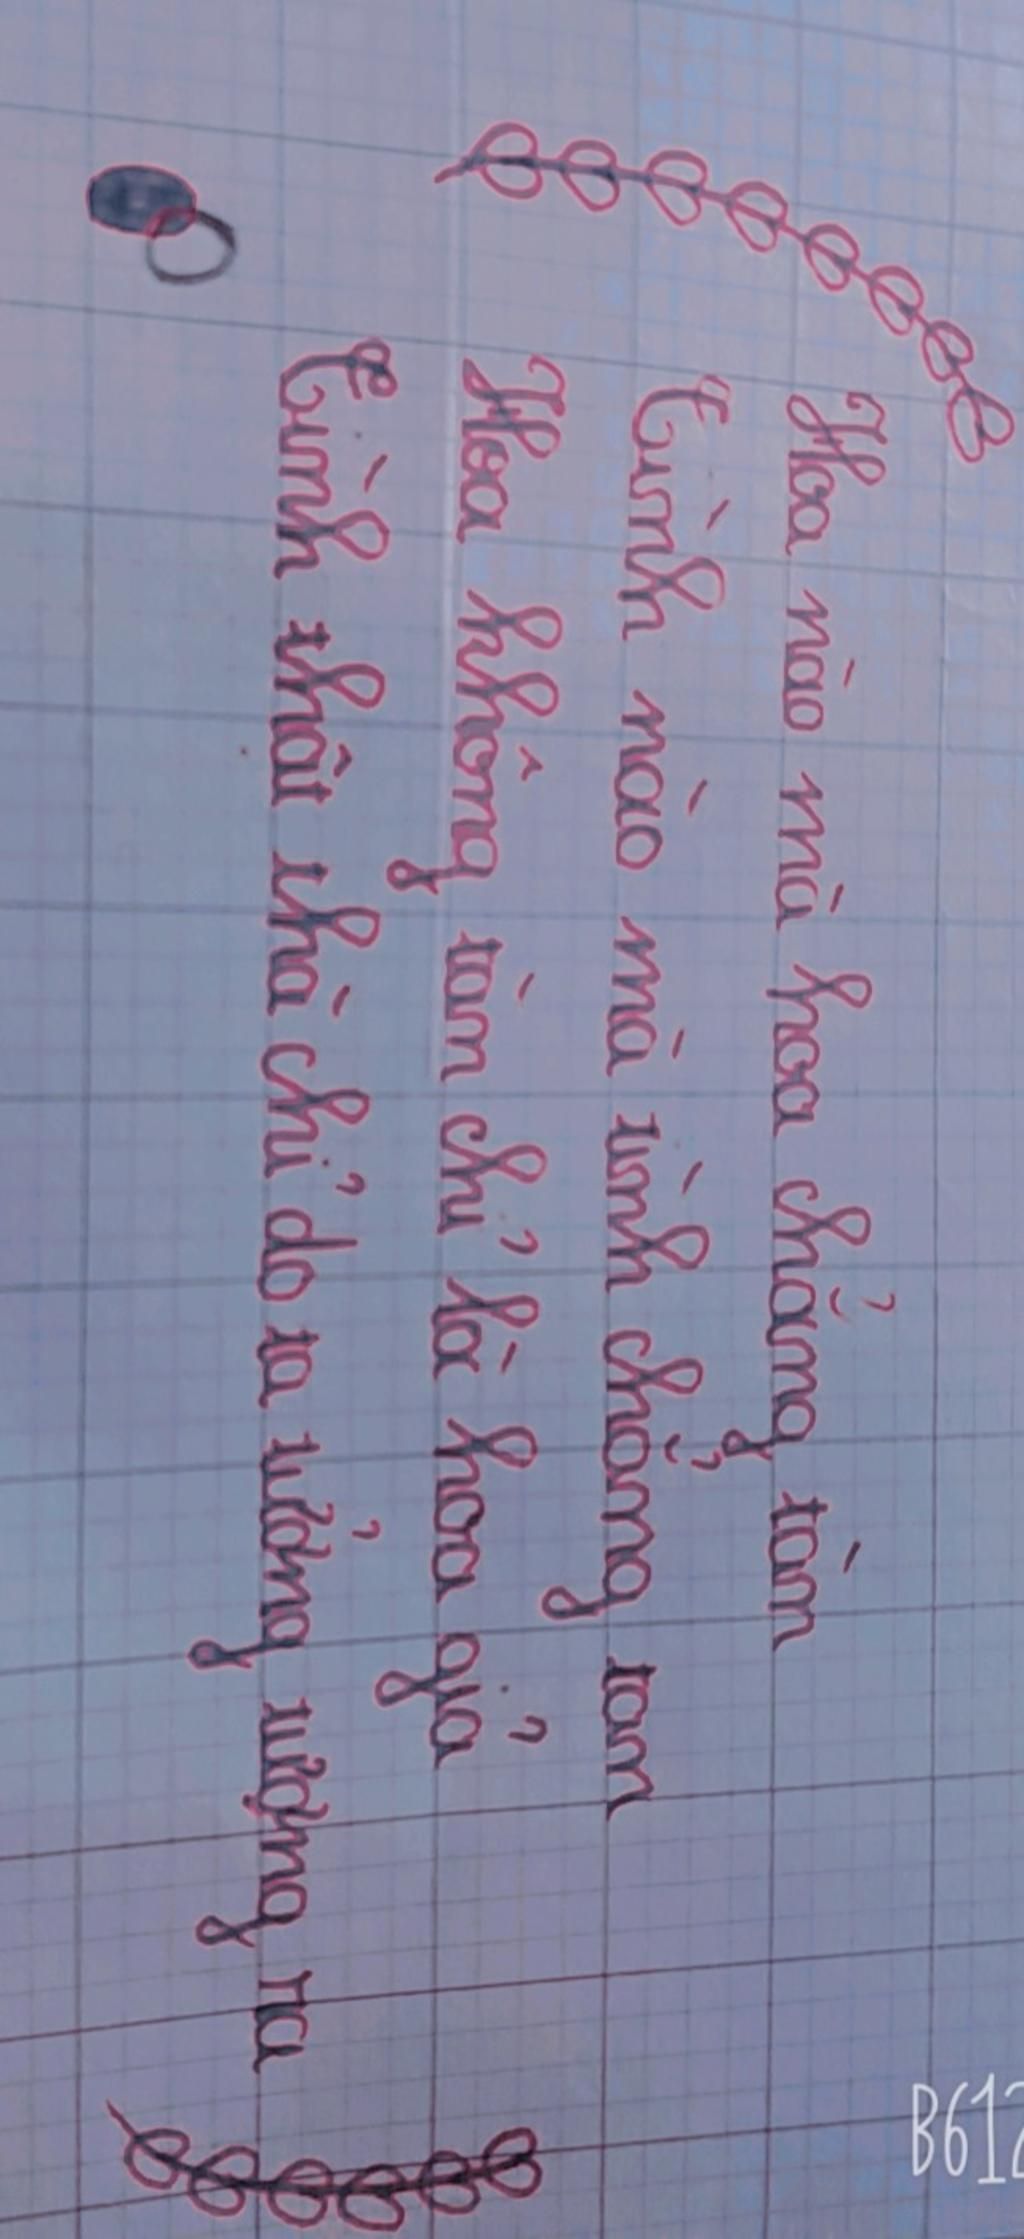 Hoa nào mà hoa chẳng tàn
Tình nào mà tình chẳng tan
Hoa không tàn chỉ là hoa giả
Tình thật chà chỉ do ta tưởng tượng ra
B612